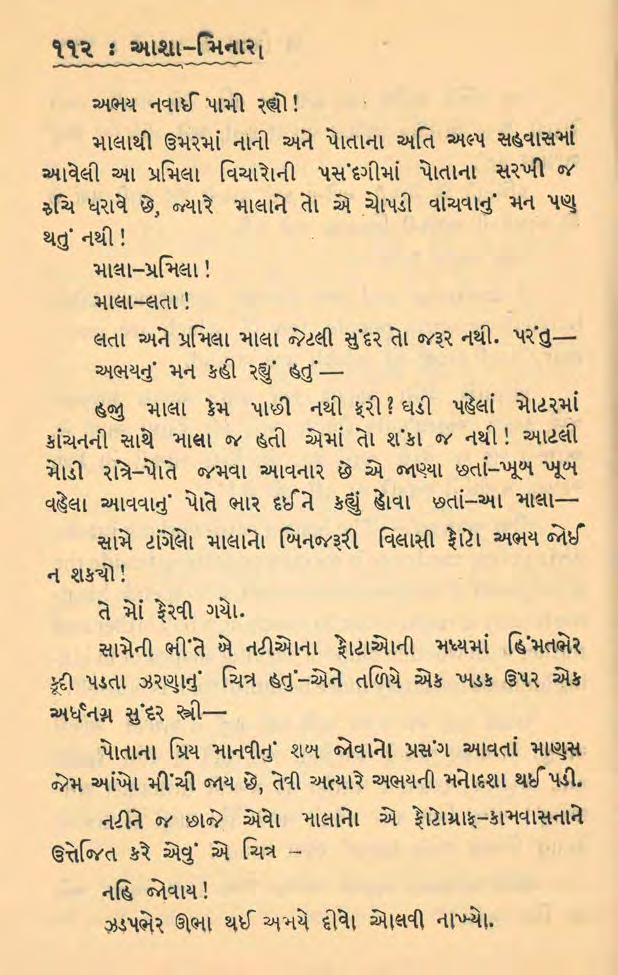 ૧૧૨ : આશા-મિનાર
અભય નવાઈ પામી રહ્યો!
માલાથી ઉમરમાં નાની અને પોતાના અતિ અલ્પ સહવાસમાં
આવેલી આ પ્રમિલા વિચારોની પસંદગીમાં પોતાના સરખી જ
રુચિ ધરાવે છે, જ્યારે માલાને તો એ ચોપડી વાંચવાનું મન પણ
થતું નથી!
માલા-પ્રમિલા!
માલા-લતા!
લતા અને પ્રમિલા માલા જેટલી સુંદર તો જરૂર નથી. પરંતુ—
અભયનું મન કહી રહ્યું હતું—
હજુ માલા કેમ પાછી નથી ફરી? ઘડી પહેલાં મોટરમાં
કાંચનની સાથે માલા જ હતી એમાં તો શંકા જ નથી! આટલી
મોડી રાત્રે-પોતે જમવા આવનાર છે એ જાણ્યા છતાં-ખૂબ ખૂબ
વહેલા આવવાનું પોતે ભાર દઈને કહ્યું હોવા છતાં-આ માલા—
સામે ટાંગેલો માલાનો બિનજરૂરી વિલાસી ફોટો અભય જોઈ
ન શક્યો!
તે મોં ફેરવી ગયો.
સામેની ભીંતે બે નટીઓના ફોટાઓની મધ્યમાં હિંમતભેર
કૂદી પડતા ઝરણાનું ચિત્ર હતું-એને તળિયે એક ખડક ઉપર એક
અર્ધનગ્ન સુંદર સ્ત્રી—
પોતાના પ્રિય માનવીનું શબ જોવાનો પ્રસંગ આવતાં માણસ
જેમ આંખો મીંચી જાય છે, તેવી અત્યારે અભયની મનોદશા થઈ પડી.
નટીને જ છાજે એવો માલાનો એ ફોટોગ્રાફ-કામવાસનાને
ઉત્તેજિત કરે એવું એ ચિત્ર -
નહિ જોવાય!
ઝડપભેર ઊભા થઈ અભયે દીવો ઓલવી નાખ્યો.